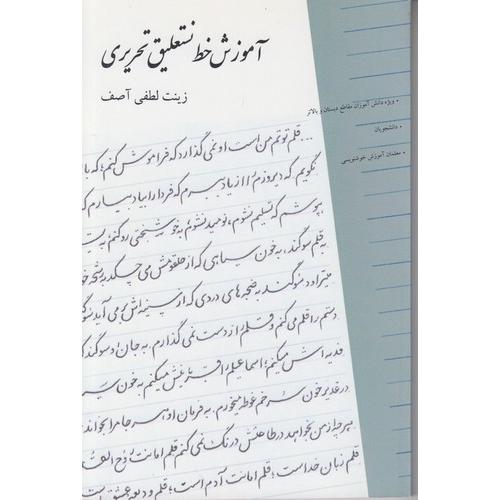 آموزش خط نستعلیق تحریری
زینت لطفی آصف
• ویژه دانش آموزان مقاطع دبستان و بالاتر
• دانشجویان
• معلمان آموزش خوشنویسی
... قلم توتم من است، او نمی گذارد که فراموش کنم؛ که با
نگویم که دیروزم را از یاد ببرم که فردا را بیاد بیارم که
بپوشم که تسلیم نشوم، نومید نشوم، به خوشبختی رو نکنم، به
به قلم سوگند، به خون سیاهی که از حلقومش می چکد به رشحه خو
می تراود سوگند به ضجه های دردی که از سینه اش بر می آید سوگ
دستم را قلم می کنم و قلمم را از دست نمی گذارم. به جان او سوگند که
فدیه اش میکنم؛ اسماعیلم را قربانیش میکنم به خون سیـ
در غدیر خون سرخم غوطه میخورم. به فرمان او، هر جا مرا بخواند
هر چه از من بخواهد در طاعتش درنگ نمی کنم قلم امانت روح القد
قلم زبان خداست؛ قلم امانت آدم است؛ قلم ودیعه عشق است